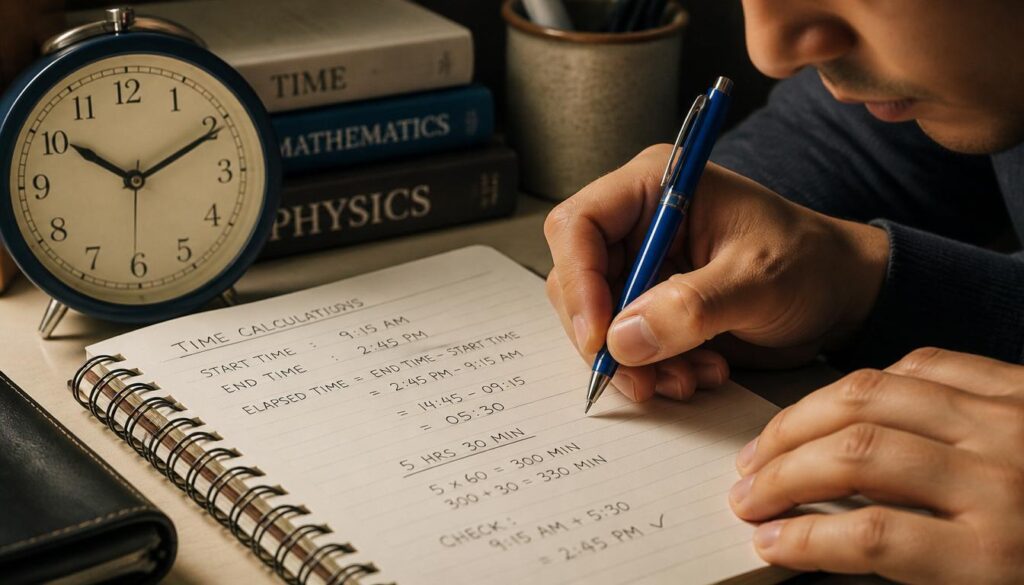 12
1
2
3
4
5
6
7
8
9
10
11
TIME
MATHEMATICS
PHYSICS
TIME CALCULATIONS
START TIME : 9:15 AM
END TIME : 2:45 PM
ELAPSED TIME = END TIME - START TIME
= 2:45 PM - 9:15 AM
= 14:45 - 09:15
= 05:30
5 HRS 30 MIN
5 × 60 = 300 MIN
300 + 30 = 330 MIN
CHECK:
9:15 AM + 5:30
= 2:45 PM ✓